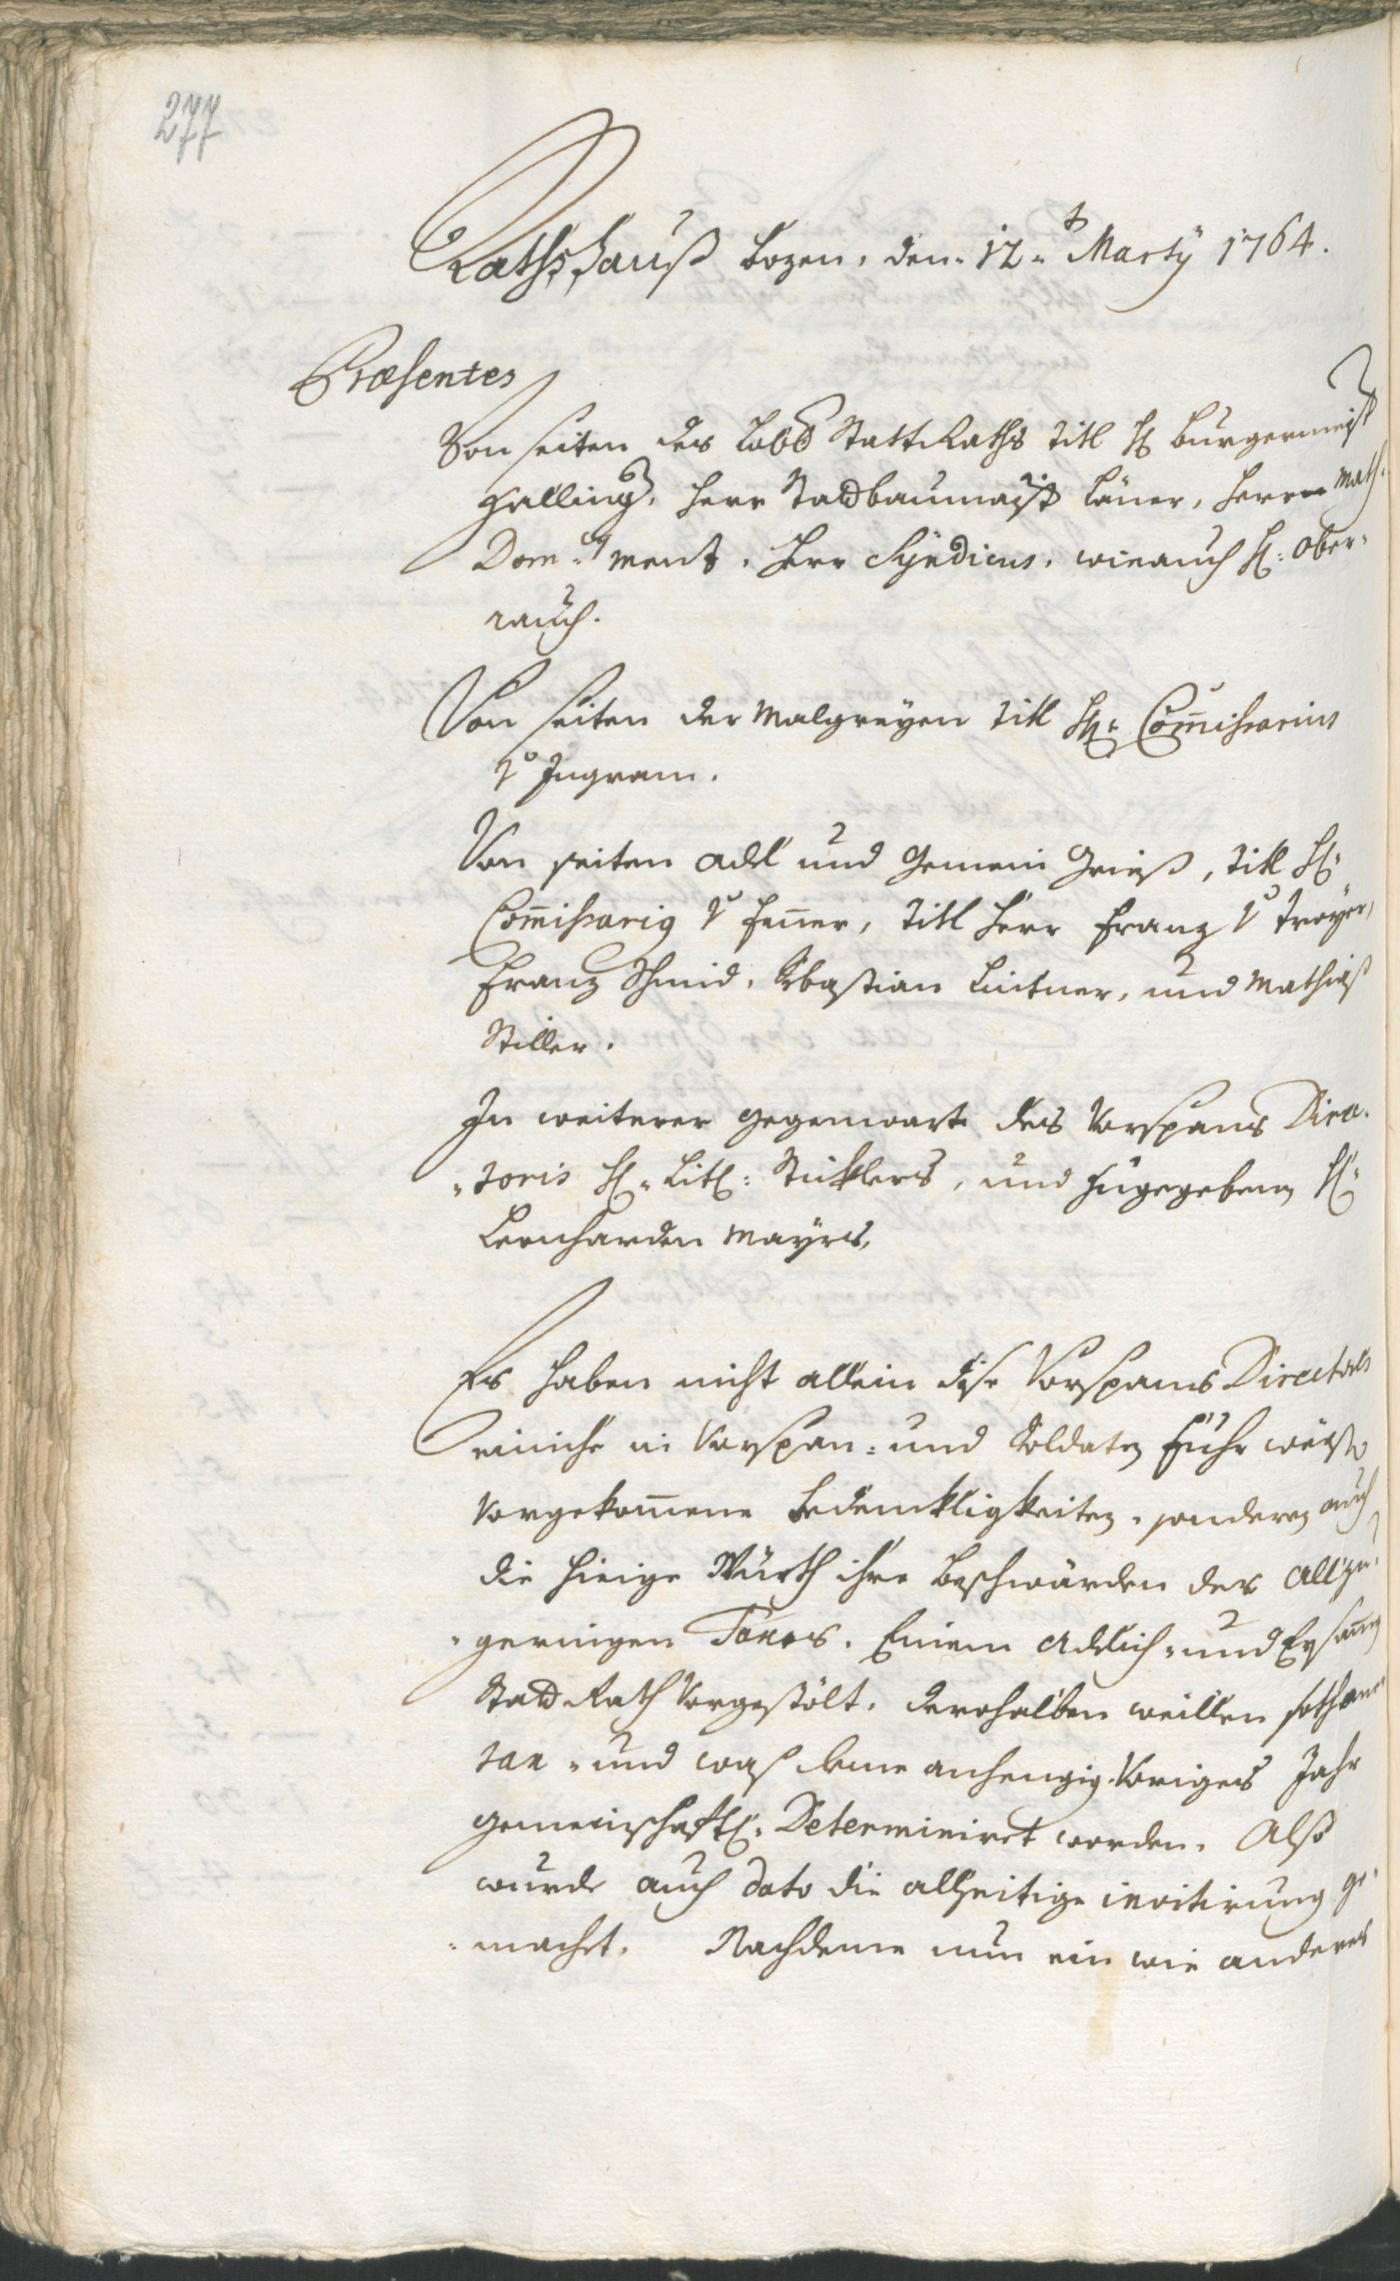 277
Rathshauß Bozen, den 12t Marty 1764.
Præsentes
Von seiten des Löbl Statt Raths Titl H Burgermeist
Hälling, Herr Stadbaumaister Läner, Herrn Math:
Dom: Menz, Herr Syndicus, wie auch H: Ober-
rauch.
Von seiten der Malgreyen Titl H: Com̅issarius
v Ingram.
Von seiten Adl und Gemein Grieß, Titl H:
Com̅issarig v Hen̅er, Titl Herr Franz v Troyer,
Franz Schmid, Sebastian Lintner, und Mathias
Stiller.
In weiterer gegenwart des Vorspans Direc-
-toris H: Litl: Stiklers, und zugegebenen H:
Leonharden Mayrs,
Es haben nicht allein dise Vorspans Directores
einiche in Vorspan- und Soldaten Fuhr weißen
Vorgekom̅ene Bedenkligkeiten, sonderen auch
die hieige Würth ihre Beschwärden des allzu-
-geringen Taxes, Einem Adelich- und Ersamen
Stad Rath Vorgestölt, derohalben weillen sothane
tax- und waß deme anhengig Voriges Jahr
gemeinschaftl: Determiniret worden. Also
wurde auch dato die allseitige invitirung ge-
-macht. Nachdeme nun ein wie anderes